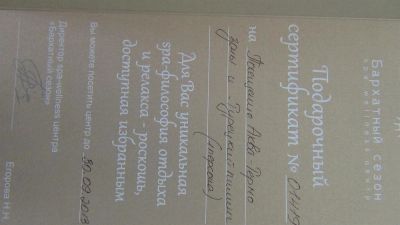 Бархатный сезон
Подарочный
сертификат №
на Посещение Аква Термо
зоны и Турецкий пилинг
(1 персона)
Для Вас уникальная
spa-философия отдыха
и релакса - роскошь,
доступная избранным
Вы можете посетить центр до 30.09.2018
Директор spa-wellness центра
«Бархатный сезон»
Егорова Н.Н.